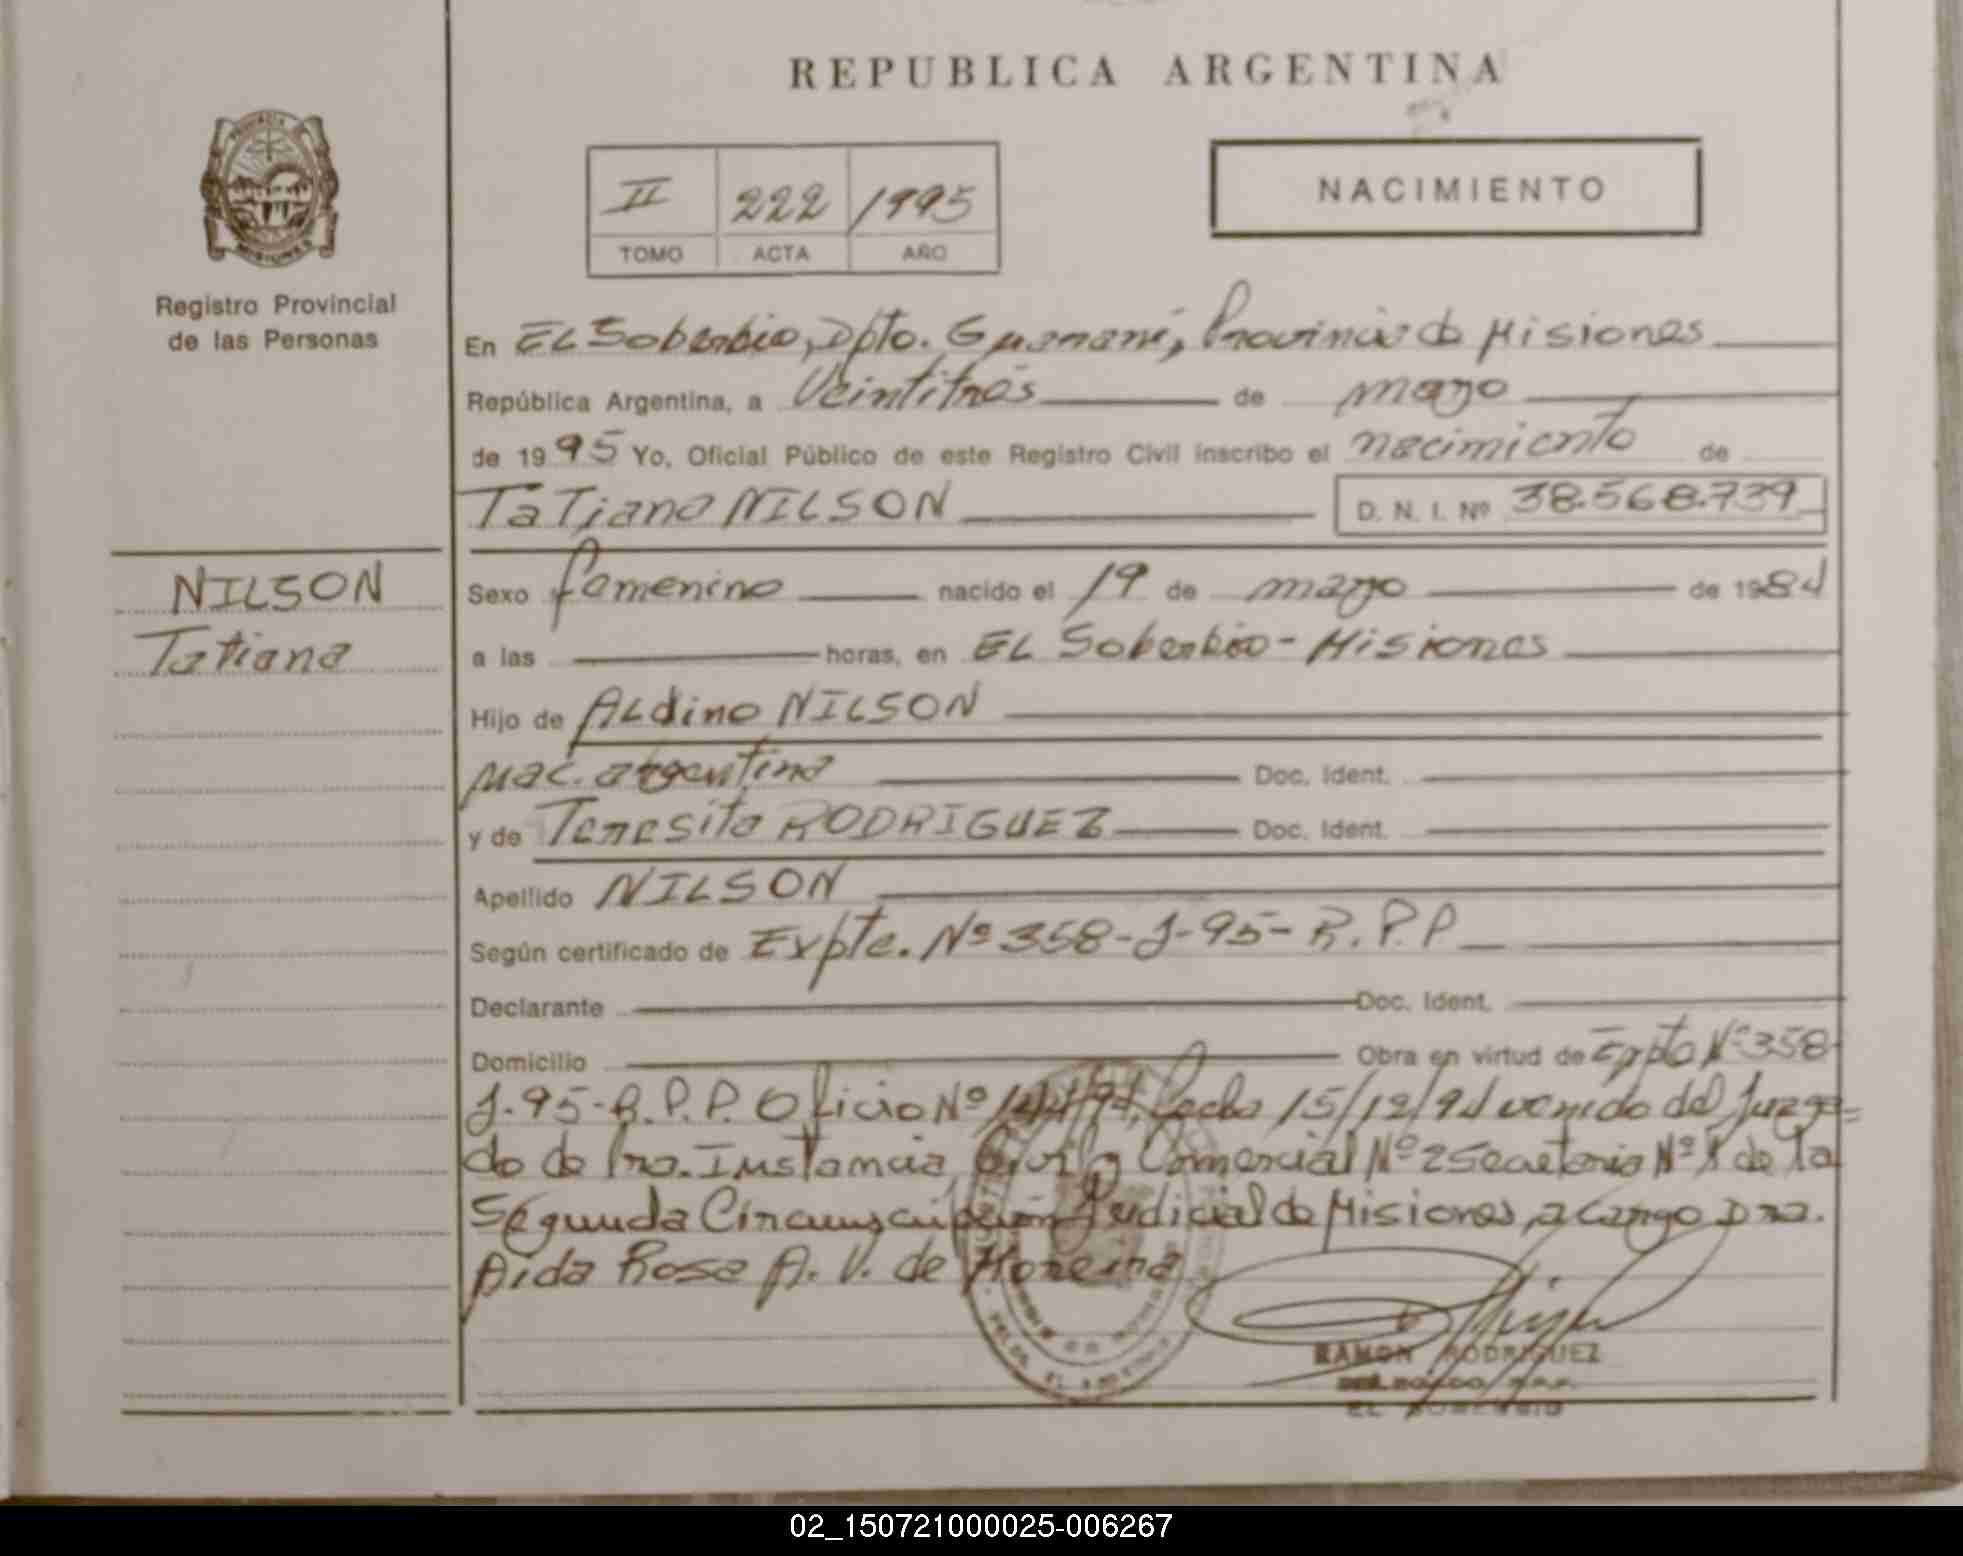 REPUBLICA ARGENTINA
PROVINCIA DE
MISIONES
Registro Provincial
de las Personas
II 222 1995
TOMO ACTA AÑO
NACIMIENTO
En EL Soberbio, Dpto. Guaraní, Provincia de Misiones
República Argentina, a Veintitrés de mayo
de 1995 Yo, Oficial Público de este Registro Civil inscribo el nacimiento de
Tatiana NILSON D. N. I. Nº 38.568.739
NILSON
Tatiana
Sexo femenino nacido el 19 de mayo de 1984
a las horas, en EL Soberbio - Misiones
Hijo de ALdino NILSON
Nac. argentina Doc. Ident.
y de Teresita RODRIGUEZ Doc. Ident.
Apellido NILSON
Según certificado de Expte. Nº 358-J-95-R.P.P
Declarante Doc. Ident.
Domicilio Obra en virtud de Expte Nº 358
J-95-R.P.P. Oficio Nº fecha 15/12/94 venido del Juzga=
do de 1ra. Instancia Civil y Comercial Nº 2 Secretaria Nº de la
Segunda Circunscripción Judicial de Misiones, a cargo Dra.
Aida Rosa A. V. de Moreira
RAMON RODRIGUEZ
EL SOBERBIO
02_150721000025-006267